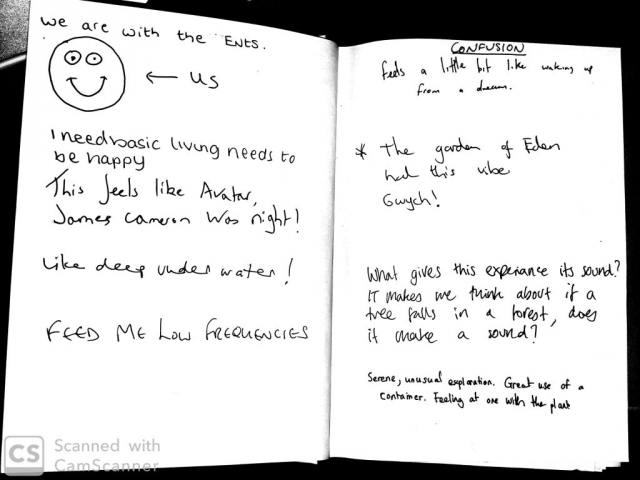 We are with the Ents.
← us
I need basic living needs to
be happy
This feels like Avatar,
James Cameron was right!
Like deep under water!
FEED ME LOW FREQUENCIES
CONFUSION
feels a little bit like waking up
from a dream.
* The garden of Eden
had this vibe
Gwych!
What gives this experiance its sound?
IT makes me think about if a
tree falls in a forest, does
it make a sound?
Serene, unusual exploration. Great use of a
container. Feeling at one with the plant
CS Scanned with
CamScanner